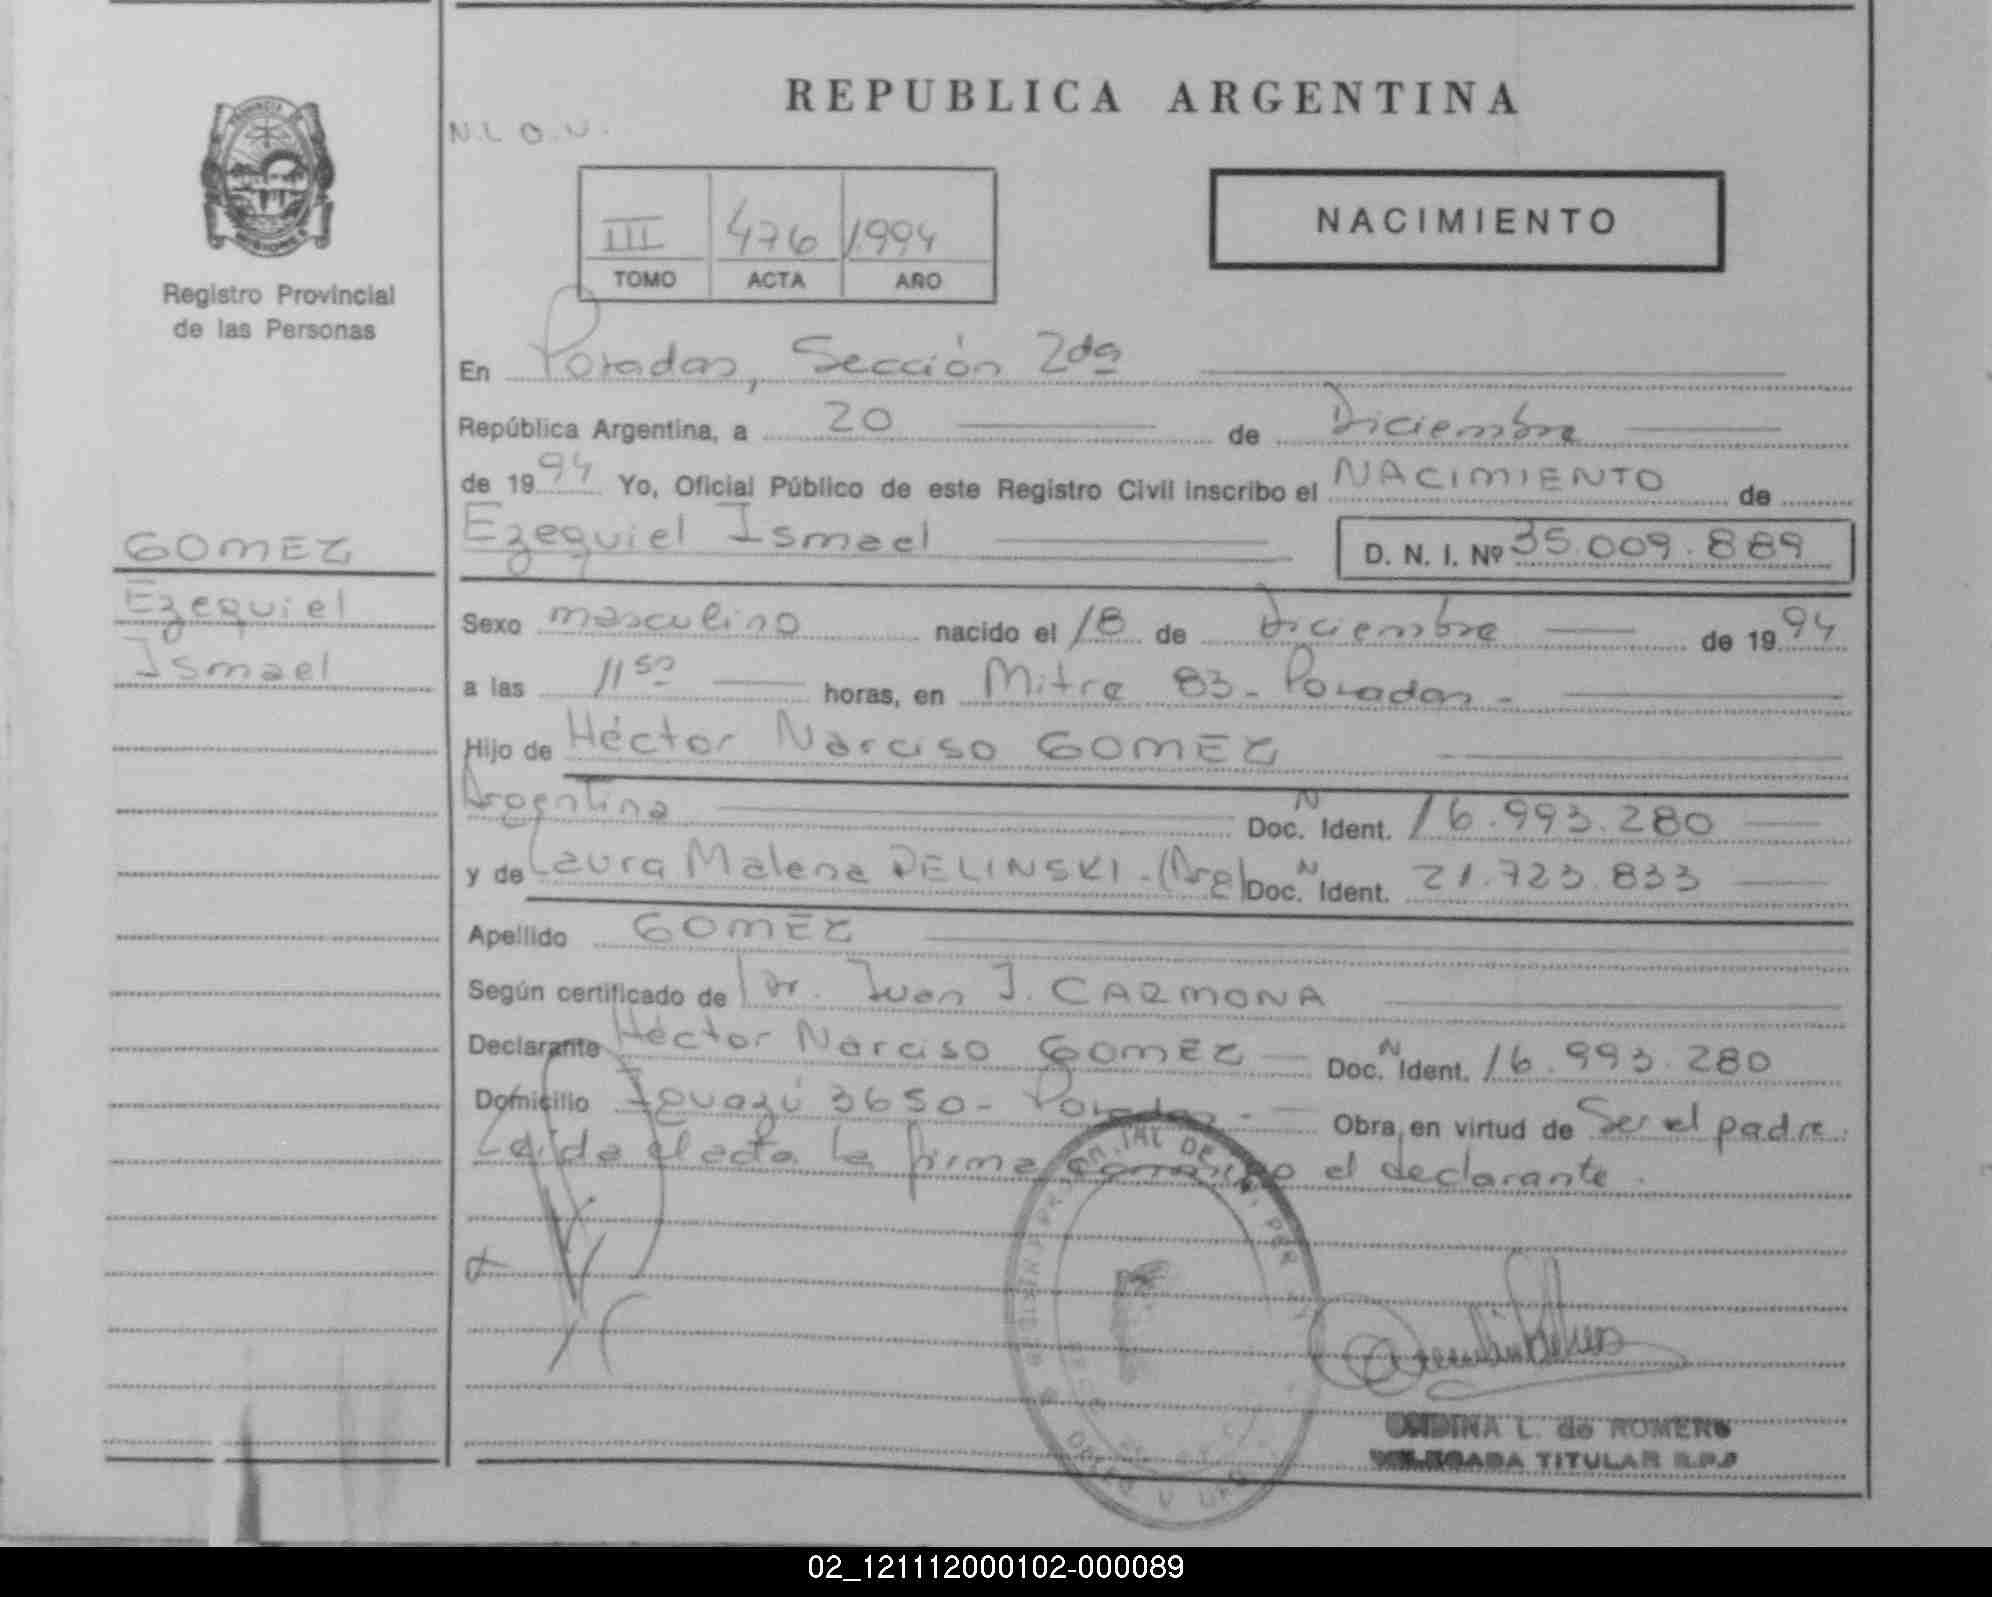 REPUBLICA ARGENTINA
N.L O.U.
NACIMIENTO
III 476 1994
TOMO ACTA AÑO
Registro Provincial
de las Personas
En Posadas, Sección 2da
República Argentina, a 20 de Diciembre
de 1994 Yo, Oficial Público de este Registro Civil inscribo el NACIMIENTO de
Ezequiel Ismael D. N. I. Nº 35.009.889
GOMEZ
Ezequiel
Ismael
Sexo masculino nacido el 18 de Diciembre de 1994
a las 11 50 horas, en Mitre 83 - Posadas -
Hijo de Héctor Narciso GOMEZ
Argentina Doc. N Ident. 16.993.280
y de Laura Malena DELINSKI - (Arg) Doc. N Ident. 21.723.833
Apellido GOMEZ
Según certificado de Dr. Juan J. CARMONA
Declarante Héctor Narciso GOMEZ Doc. N Ident. 16.993.280
Domicilio Iguazú 3650 - Posadas - Obra en virtud de Ser el padre.
Leída el acta la firma conmigo el declarante.
L. de ROMERO
TITULAR R.P.P
02_121112000102-000089